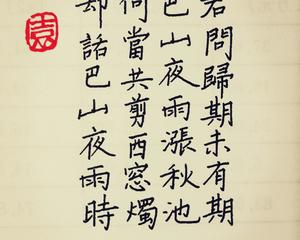 君問歸期未有期
巴山夜雨漲秋池
何當共剪西窓燭
却話巴山夜雨時